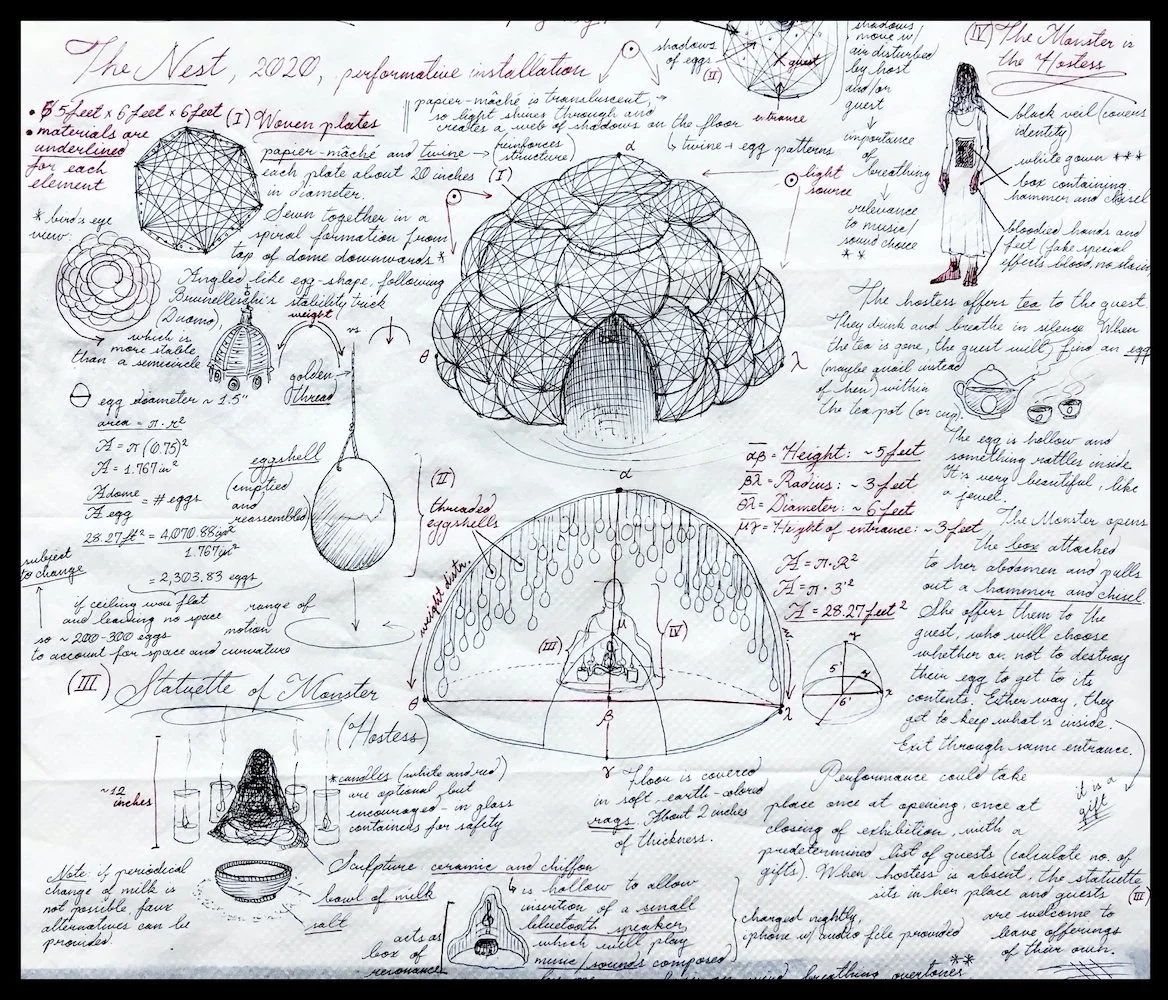 The Nest, 2020, performative installation
• 5 feet x 6 feet x 6 feet
• materials are
underlined
for each
element
(I) Woven plates
papier-mâché and twine → (reinforces
structure)
each plate about 20 inches
in diameter.
Sewn together in a
spiral formation from
top of dome downwards *
* bird's eye
view
papier-mâché is translucent, →
so light shines through and
creates a web of shadows on the floor
↳ twine + egg patterns
shadows
of eggs
(II)
guest
entrance
shadows
move w/
air disturbed
by host
and/or
guest
↓
importance
of
breathing
↓
relevance
to music/
sound choice
* *
(I)
α
light
source
θ
λ
(IV) The Monster is
the Hostess
black veil (covers
identity)
white gown ***
box containing
hammer and chisel
bloodied hands and
feet (fake special
effects blood, no stain
Angled-like egg-shape, following
Brunelleschi's stability trick
(Duomo),
which is
more stable
than a semicircle
weight
vs
golden
thread
egg diameter ~ 1.5"
area = π · r²
A = π (0.75)²
A = 1.767 in²
A dome
A egg
= # eggs
28.27 ft² = 4,070.88 in²
1.767 in²
= 2,303.83 eggs
subject
to change
if ceiling was flat
and leaving no space
so ~ 200-300 eggs
to account for space and curvature
eggshell
(emptied
and
reassembled)
range of
motion
(II)
threaded
eggshells
weight distr.
α
(III)
μ
(IV)
θ
β
λ
γ
The hostess offers tea to the guest.
They drink and breathe in silence. When
the tea is gone, the guest will find an egg
(maybe quail instead
of hen) within
the tea pot (or cup).
The egg is hollow and
something rattles inside.
It is very beautiful, like
a jewel.
αβ = Height: ~ 5 feet
βλ = Radius: ~ 3 feet
θλ = Diameter: ~ 6 feet
μγ = Height of entrance: ~ 3 feet
A = π · R²
A = π · 3'²
A = 28.27 feet²
5'
6'
The Monster opens
the box attached
to her abdomen and pulls
out a hammer and chisel.
She offers them to the
guest, who will choose
whether or not to destroy
their egg to get to its
contents. Either way, they
get to keep what is inside.
Exit through same entrance.
it is a
gift
(III) Statuette of Monster
(Hostess)
~ 12
inches
* candles (white and red)
are optional, but
encouraged - in glass
containers for safety
Floor is covered
in soft, earth-colored
rags. About 2 inches
of thickness.
Performance could take
place once at opening, once at
closing of exhibition, with a
predetermined list of guests (calculate no. of
gifts). When hostess is absent, the statuette
(III)
sits in her place and guests
are welcome to
leave offerings
of their own.
Note: if periodical
change of milk is
not possible faux
alternatives can be
provided.
Sculpture: ceramic and chiffon
bowl of milk
salt
↳ is hollow to allow
insertion of a small
bluetooth speaker
which will play
music/sounds composed
acts as
box of
resonance
charged nightly,
iphone w/ audio file provided
breathing overtones **